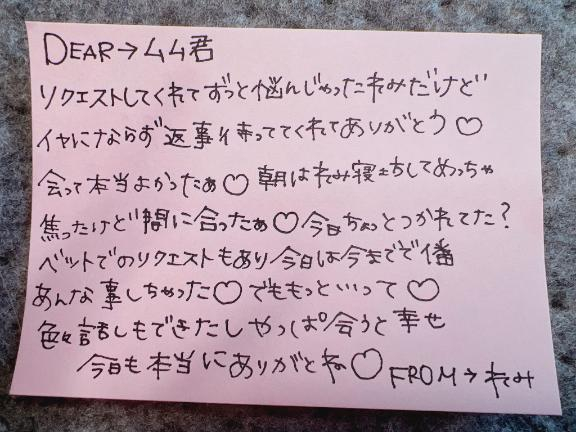 DEAR→ムム君
リクエストしてくれてずっと悩んじゃったれみだけど
イヤにならず返事待っててくれてありがとう♡
会って本当よかったぁ♡ 朝はれみ寝落ちしてめっちゃ
焦ったけど間に合ったぁ♡今日ちょっとつかれてた?
ベットでのリクエストもあり今日は今までで1番
あんな事しちゃった♡でももっといって♡
色々話しもできたしやっぱ会うと幸せ
今日も本当にありがとね♡ FROM→れみ